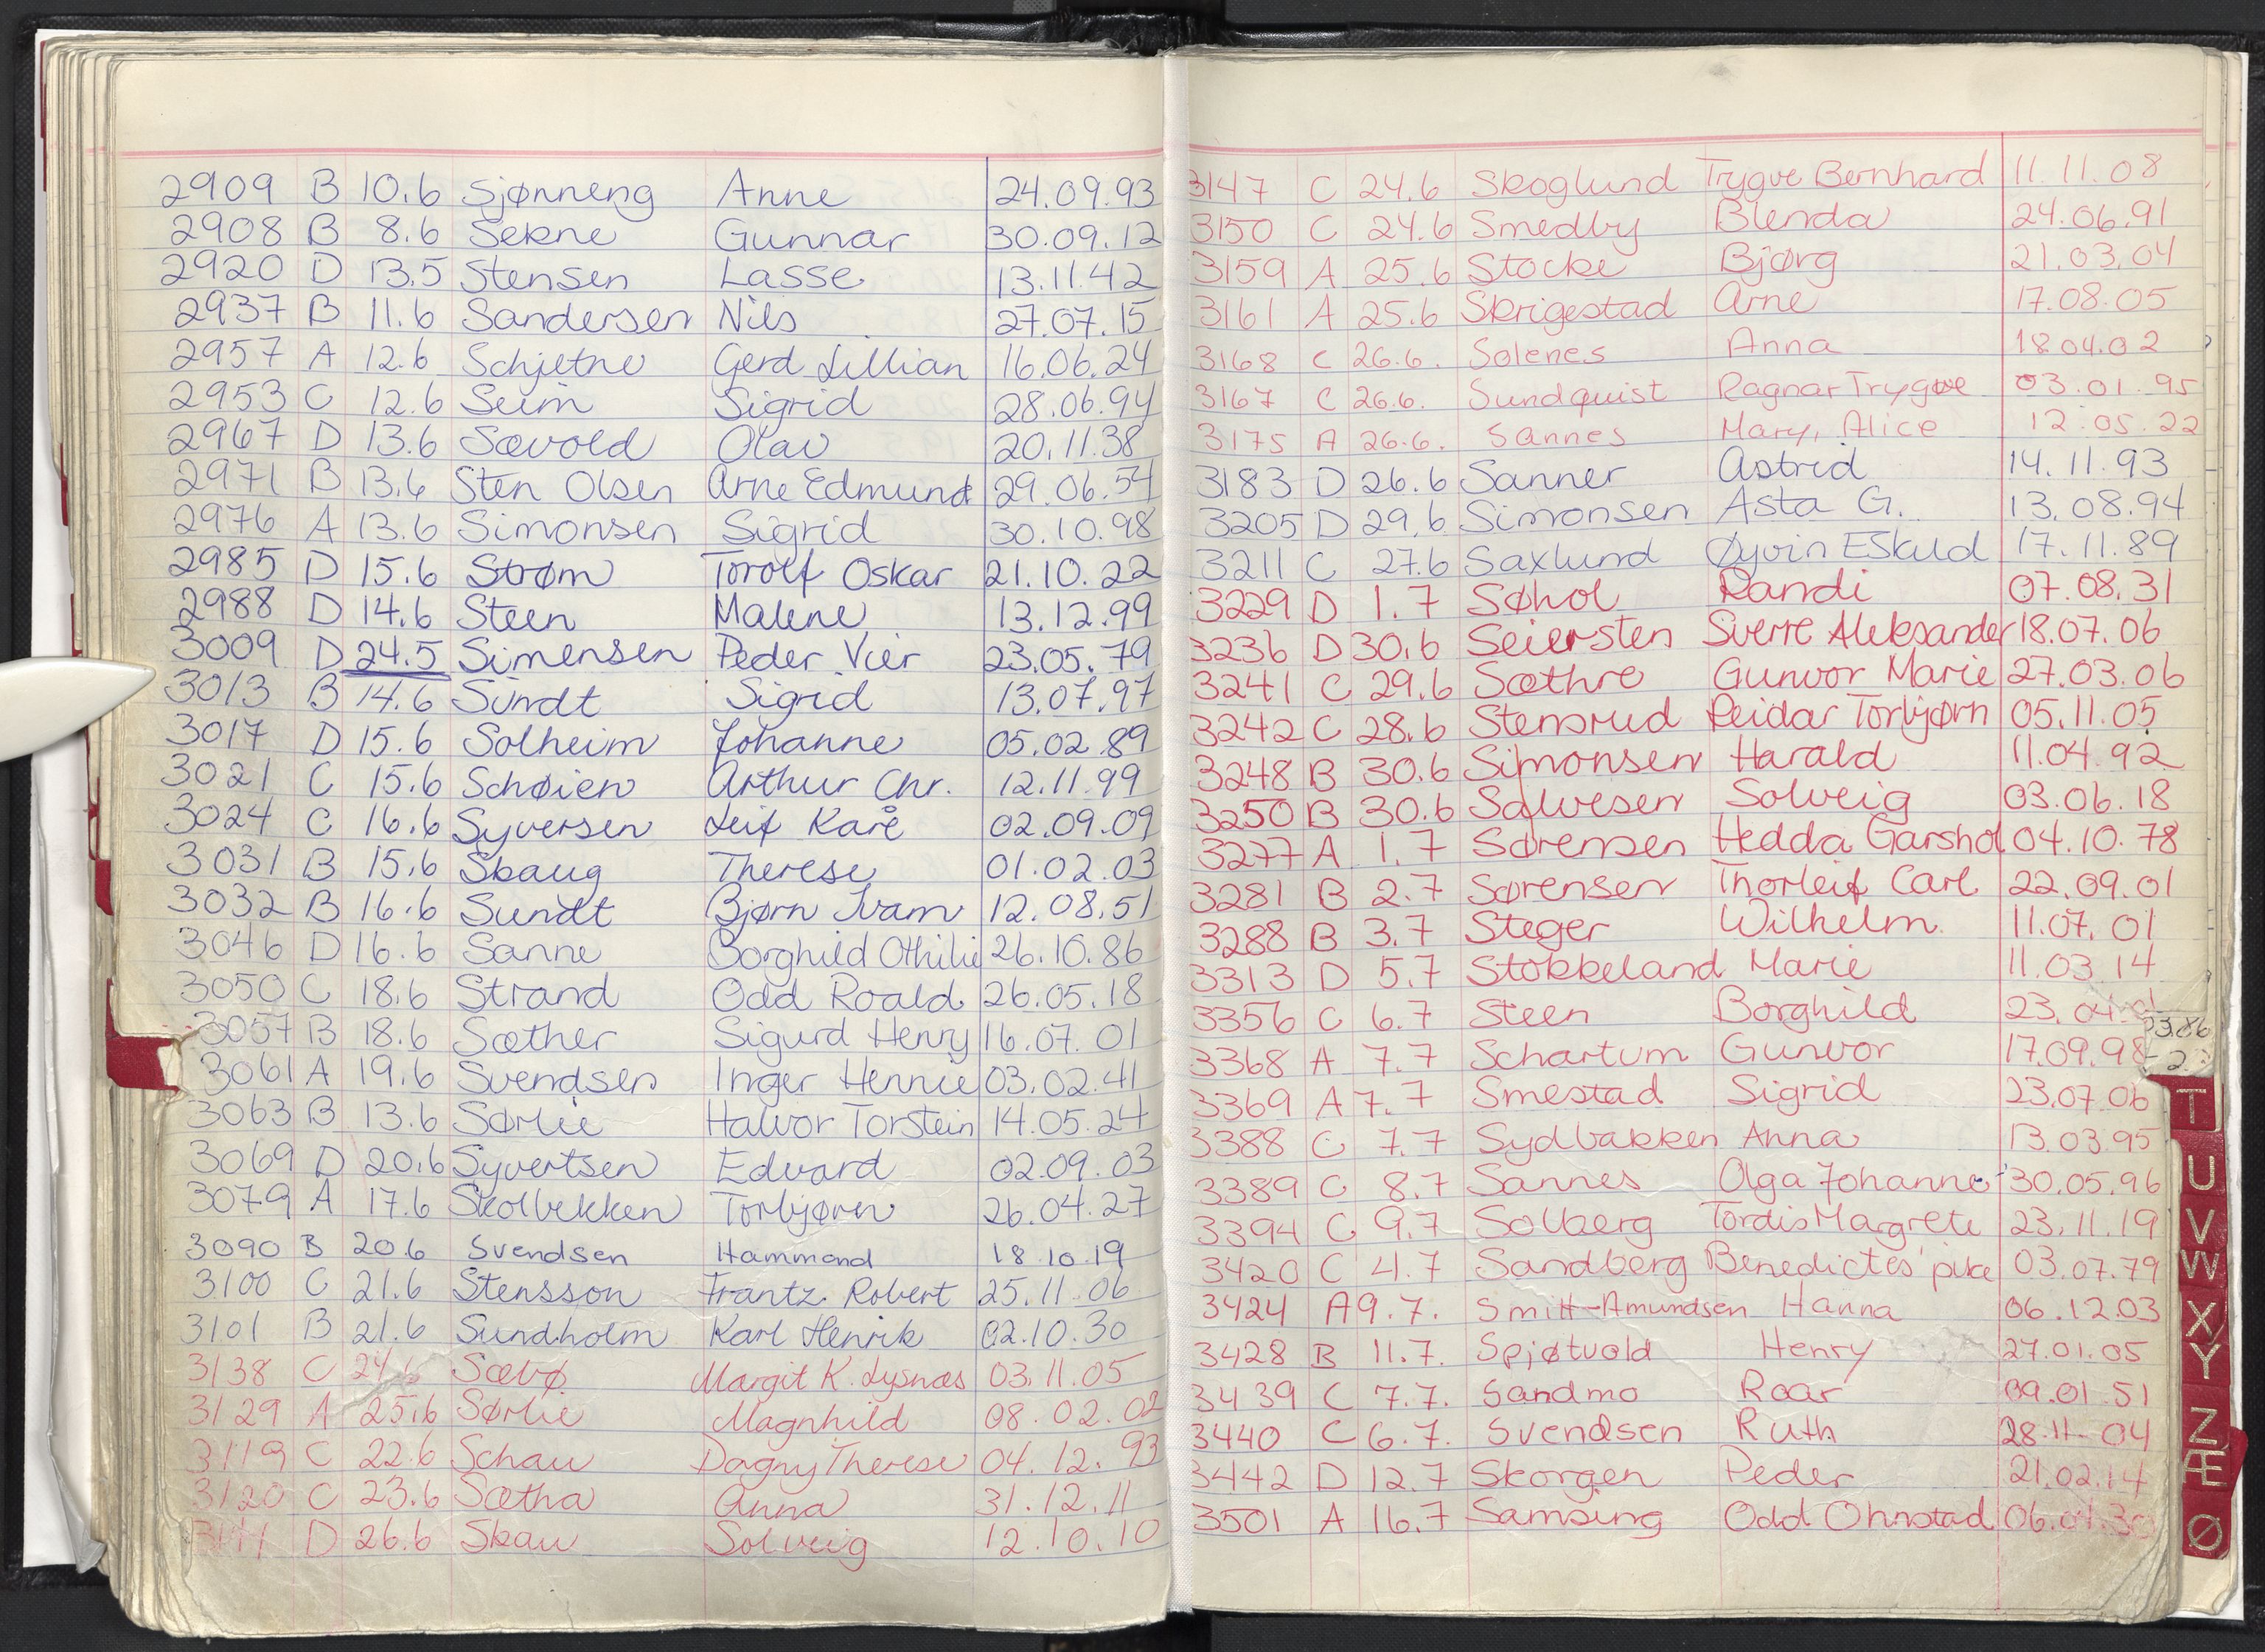 2909 B 10.6 Sjønneng Anne 24.09.93
2908 B 8.6 Sekne Gunnar 30.09.12
2920 D 13.5 Stensen Lasse 13.11.42
2937 B 11.6 Sandersen Nils 27.07.15
2957 A 12.6 Schjetne Gerd Lillian 16.06.24
2953 C 12.6 Seim Sigrid 28.06.94
2967 D 13.6 Sævold Olav 20.11.38
2971 B 13.6 Sten Olsen Arne Edmund 29.06.54
2976 A 13.6 Simonsen Sigrid 30.10.98
2985 D 15.6 Strøm Torolf Oskar 21.10.22
2988 D 14.6 Steen Malene 13.12.99
3009 D 24.5 Simensen Peder Vier 23.05.79
3013 B 14.6 Sundt Sigrid 13.07.97
3017 D 15.6 Solheim Johanne 05.02.89
3021 C 15.6 Schøien Arthur Chr. 12.11.99
3024 C 16.6 Syversen Leif Kåre 02.09.09
3031 B 15.6 Skaug Therese 01.02.03
3032 B 16.6 Sundt Bjørn Ivam 12.08.51
3046 D 16.6 Sanne Borghild Othilie 26.10.86
3050 C 18.6 Strand Odd Roald 26.05.18
3057 B 18.6 Sæther Sigurd Henry 16.07.01
3061 A 19.6 Svendsen Inger Hennie 03.02.41
3063 B 13.6 Sørlie Halvor Torstein 14.05.24
3069 D 20.6 Syvertsen Edvard 02.09.03
3079 A 17.6 Skolbekken Torbjørn 26.04.27
3090 B 20.6 Svendsen Hammond 18.10.19
3100 C 21.6 Stensson Frantz Robert 25.11.06
3101 B 21.6 Sundholm Karl Henrik 02.10.30
3138 C 24.6 Sæbø Margit K. Lysnæs 03.11.05
3129 A 25.6 Sørlie Magnhild 08.02.02
3119 C 22.6 Schau Dagny Therese 04.12.93
3120 C 23.6 Sætha Anna 31.12.11
D 26.6 Skau Solveig 12.10.10
3147 C 24.6 Skoglund Trygve Bernhard 11.11.08
3150 C 24.6 Smedby Blenda 24.06.91
3159 A 25.6 Stocke Bjørg 21.03.04
3161 A 25.6 Skrigestad Arne 17.08.05
3168 C 26.6. Solenes Anna 18.04.02
3167 C 26.6. Sundquist Ragnar Trygve 03.01.95
3175 A 26.6. Sannes Mary, Alice 12.05.22
3183 D 26.6 Sanner Astrid 14.11.93
3205 D 29.6 Simonsen Asta G. 13.08.94
3211 C 27.6 Saxlund Øyvin Eskild 17.11.89
3229 D 1.7 Søhol Randi 07.08.31
3236 D 30.6 Seiersten Sverre Aleksander 18.07.06
3241 C 29.6 Sæthre Gunvor Marie 27.03.06
3242 C 28.6 Stensrud Reidar Torbjørn 05.11.05
3248 B 30.6 Simonsen Harald 11.04.92
3250 B 30.6 Salvesen Solveig 03.06.18
3277 A 1.7 Sørensen Hedda Garshol 04.10.78
3281 B 2.7 Sørensen Thorleif Carl 22.09.01
3288 B 3.7 Steger Wilhelm 11.07.01
3313 D 5.7 Stokkeland Marie 11.03.14
3356 C 6.7 Steen Borghild 23.04
3368 A 7.7 Schartum Gunvor 17.09.98
3369 A 7.7 Smestad Sigrid 23.07.06
3388 C 7.7 Sydbakken Anna 13.03.95
3389 C 8.7 Sannes Olga Johanne 30.05.96
3394 C 9.7 Solberg Tordis Margrete 23.11.19
3420 C 4.7 Sandberg Benedictes' pike 03.07.79
3424 A 9.7. Smitt-Amundsen Hanna 06.12.03
3428 B 11.7. Spjøtvold Henry 27.01.05
3439 C 7.7. Sandmo Roar 09.01.51
3440 C 6.7. Svendsen Ruth 28.11.04
3442 D 12.7 Skorgen Peder 21.02.14
3501 A 16.7 Samsing Odd Ohnstad 06.01.30
T
U
V
W
X
Y
Z
Æ
Ø